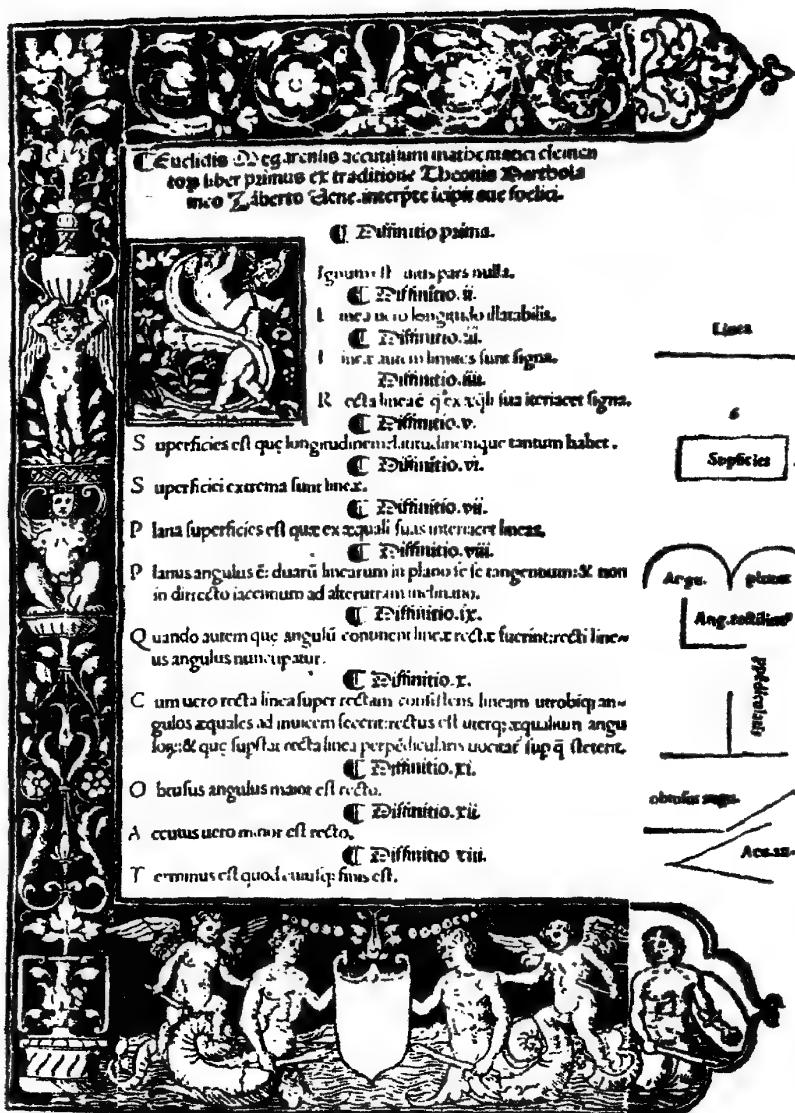 Euclidis Megarensis accutissimi mathematici elemen
toꝝ liber primus ex traditione Theonis Bartholo
meo Zāberto Uene. interpte icipit aue foelici.
Diffinitio prima.
Ignum est cuius pars nulla.
Diffinitio.ii.
L inea uero longitudo illatabilis.
Diffinitio.iii.
L ineæ autem limites sunt signa.
Diffinitio.iiii.
R ecta linea ē q̄ ex æq̄li sua iteriacet signa.
Diffinitio.v.
S uperficies est quę longitudinem latitudinemque tantum habet.
Diffinitio.vi.
S uperficiei extrema sunt lineæ.
Diffinitio.vii.
P lana superficies est quæ ex æquali suas interiacet lineas.
Diffinitio.viii.
P lanus angulus ē: duarū linearum in plano se se tangentium: & non
in directo iacentium ad alterutram inclinatio.
Diffinitio.ix.
Q uando autem quę angulū continent lineæ rectæ fuerint: recti line~
us angulus nuncupatur.
Diffinitio.x.
C um uero recta linea super rectam consistens lineam utrobiqȝ an~
gulos æquales ad inuicem fecerit: rectus est uterqȝ æqualium angu
loꝝ: & quę supstat recta linea perpēdicularis uocitať sup q̄ steterit.
Diffinitio.xi.
O btusus angulus maior est recto.
Diffinitio.xii.
A ccutus uero minor est recto.
Diffinitio xiii.
T erminus est quod cuiusqȝ finis est.
Linea
Supficies
Angu. planus
Ang. rectilineꝰ
ppēdicularis
obtusus angu.
Acu. an